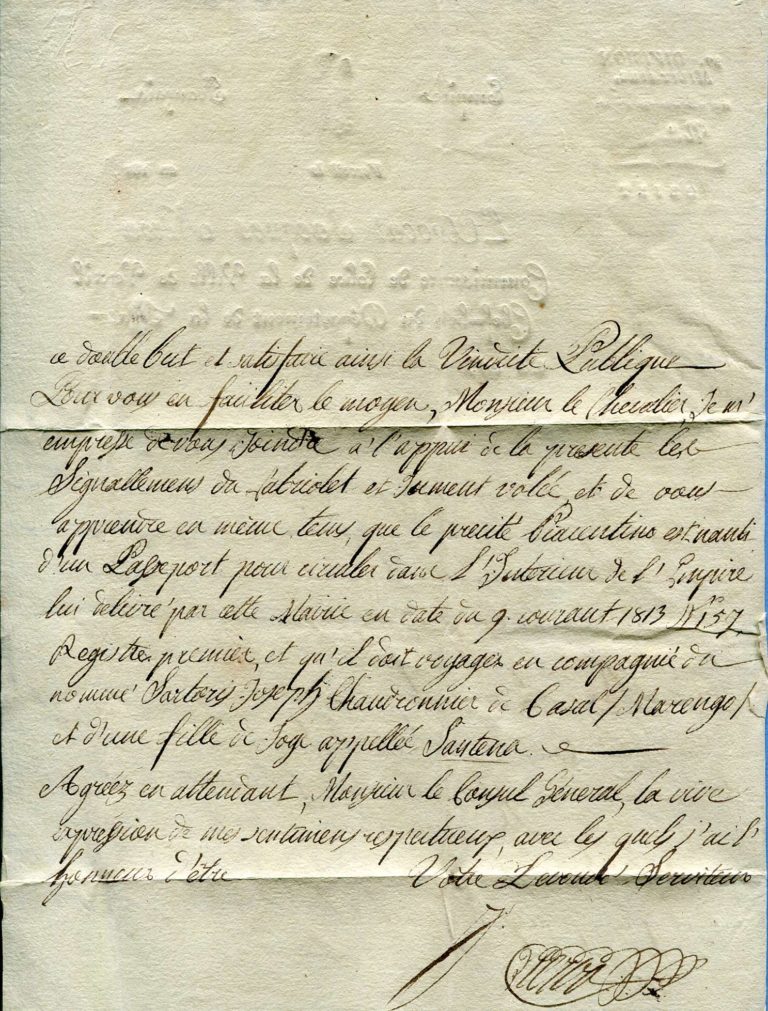 ce double but et satisfaire ainsi la Vindicte Publique
Pour vous en faciliter le moyen, Monsieur le Chevalier, Je m'
empresse de vous Joindre à l'appui de la presente les
Signallemens du Cabriolet et Jument volée, et de vous
apprendre en même tems, que le precité Piacentino est nanti
d'un Passeport pour circuler dans l'Interieur de l'Empire
lui delivré par cette Mairie en date du 9. courant 1813 N.° 157,
Registre premier, et qu'il doit voyager en compagnie du
nommé Sartoris Joseph Chaudronnier de Casal / Marengo /
et d'une fille de Joye appellée Santena.
Agréez en attendant, Monsieur le Consul Général, la vive
expression de mes sentimens respectueux, avec les quels j'ai l'
honneur d'être Votre Serviteur